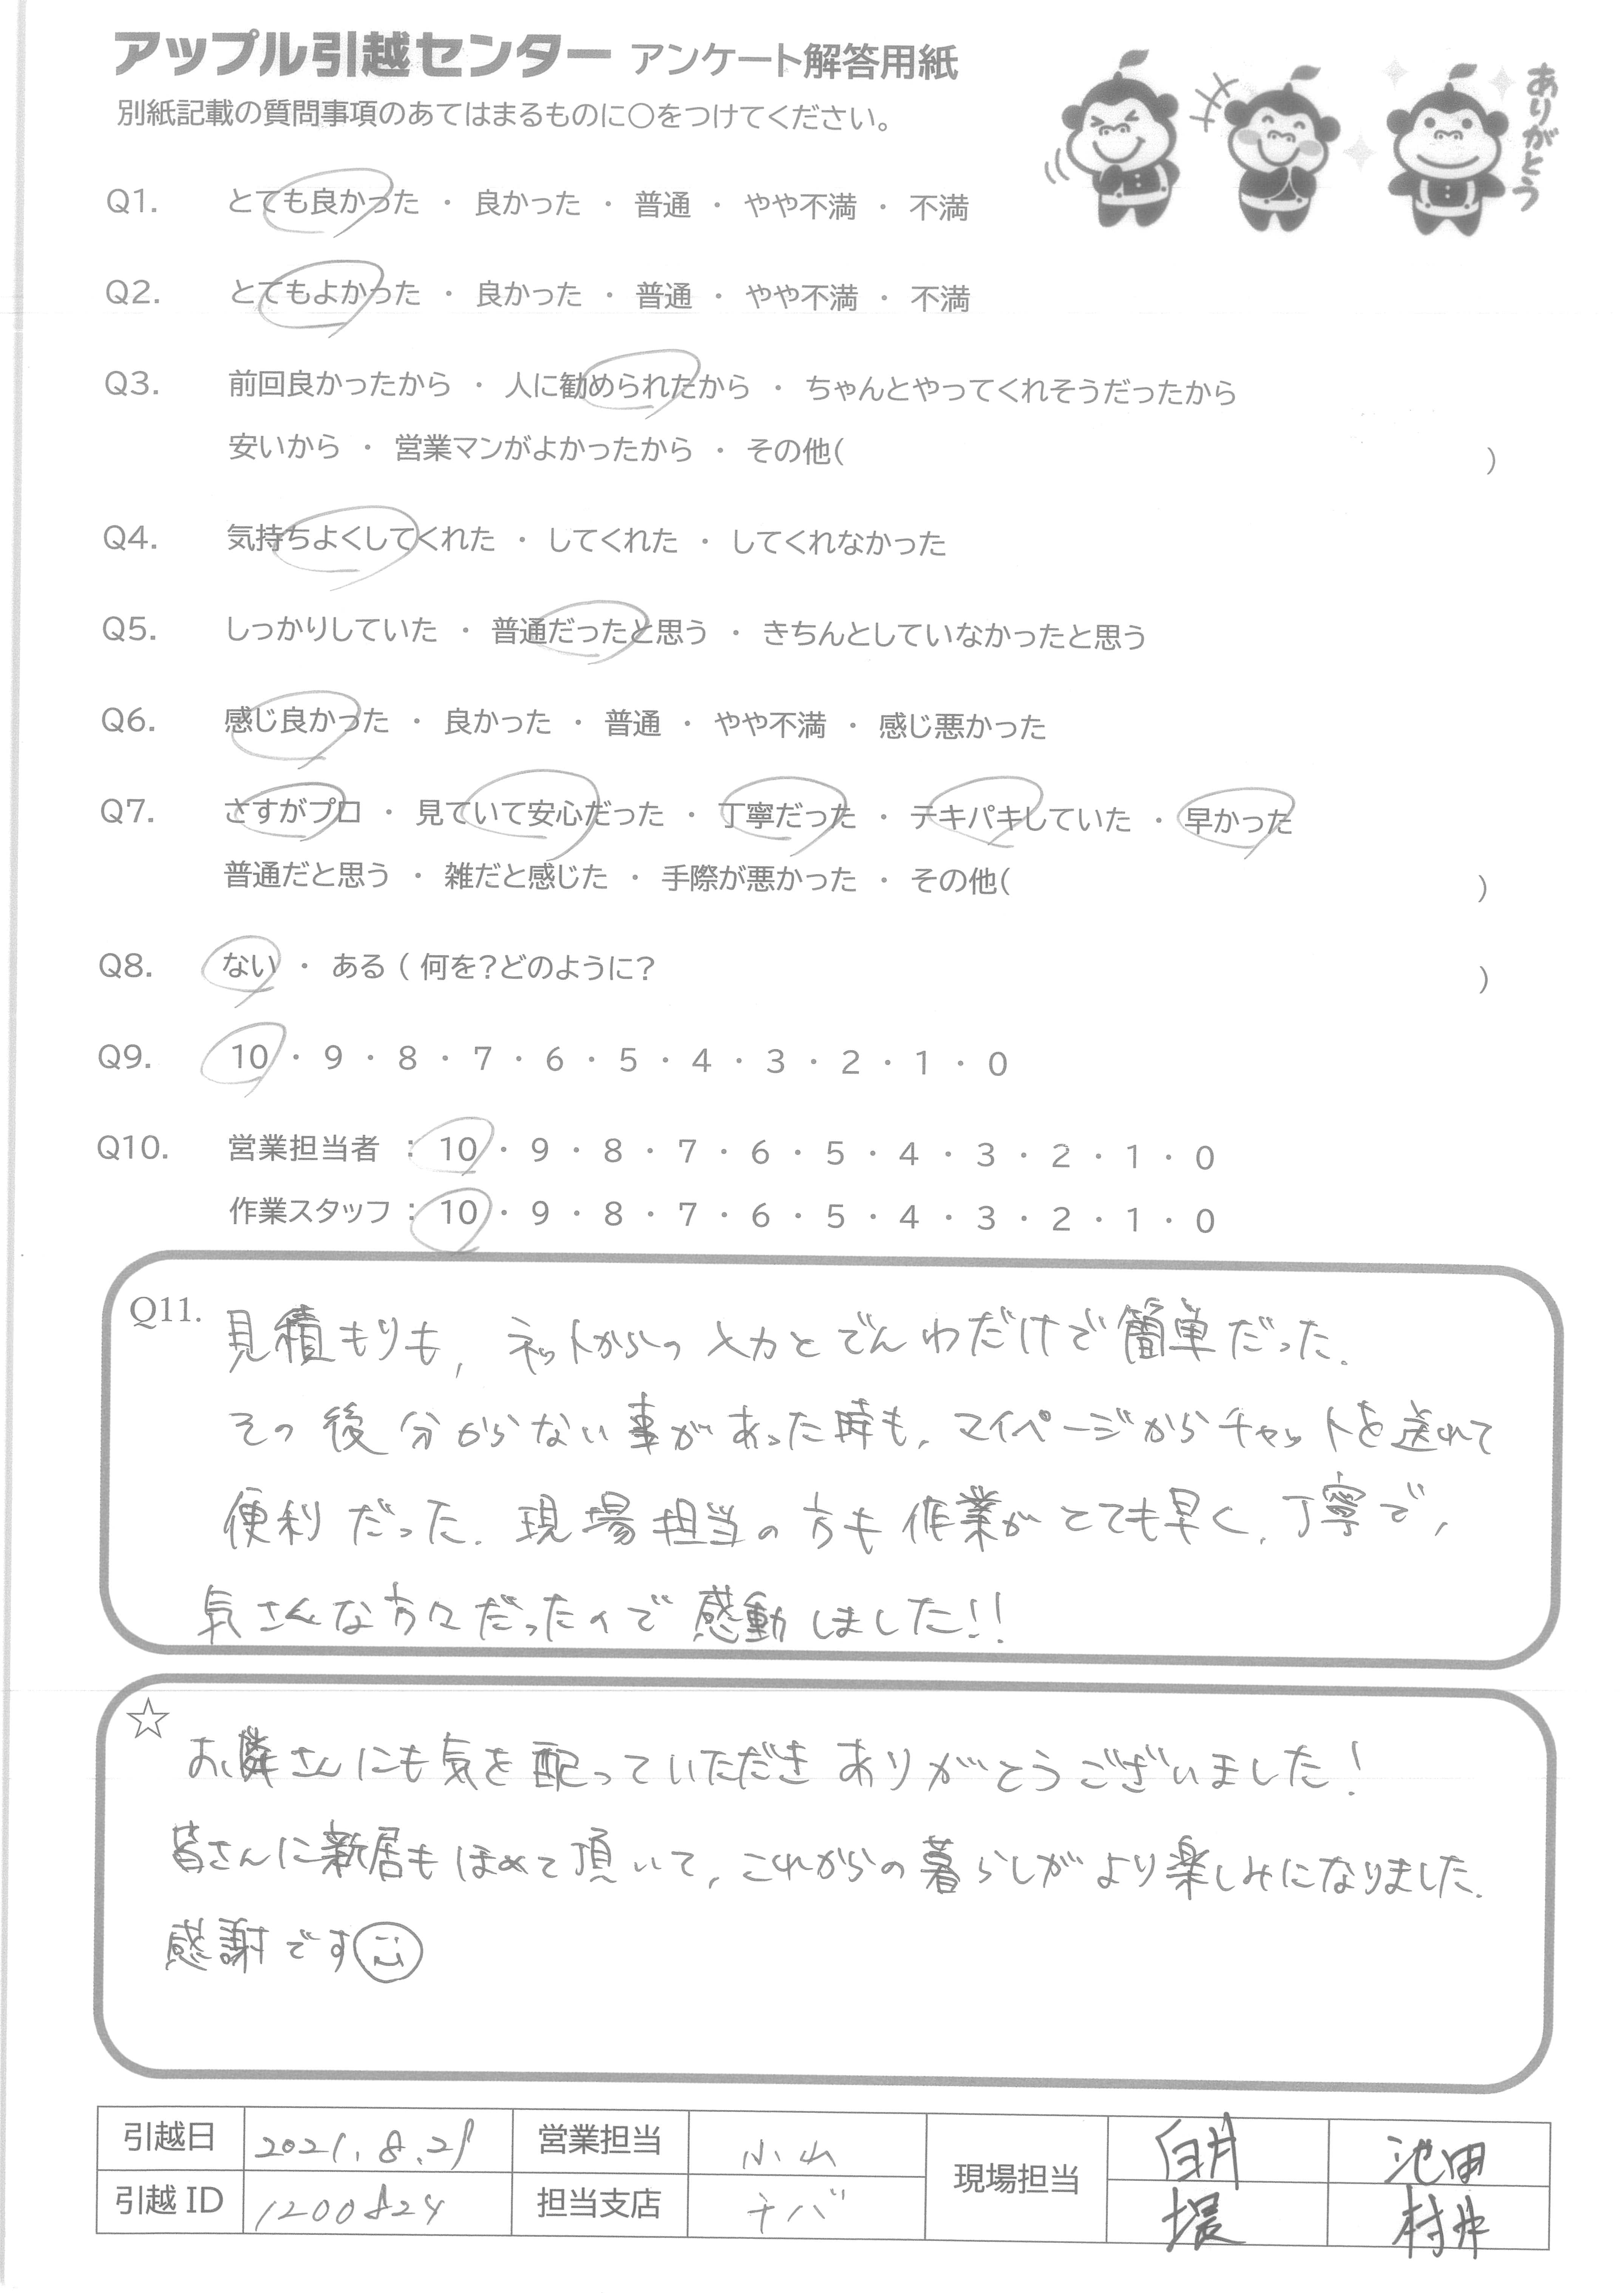 アップル引越センター アンケート解答用紙
別紙記載の質問事項のあてはまるものに○をつけてください。
ありがとう
Q1. とても良かった ・ 良かった ・ 普通 ・ やや不満 ・ 不満
Q2. とてもよかった ・ 良かった ・ 普通 ・ やや不満 ・ 不満
Q3. 前回良かったから ・ 人に勧められたから ・ ちゃんとやってくれそうだったから
安いから ・ 営業マンがよかったから ・ その他( )
Q4. 気持ちよくしてくれた ・ してくれた ・ してくれなかった
Q5. しっかりしていた ・ 普通だったと思う ・ きちんとしていなかったと思う
Q6. 感じ良かった ・ 良かった ・ 普通 ・ やや不満 ・ 感じ悪かった
Q7. さすがプロ ・ 見ていて安心だった ・ 丁寧だった ・ テキパキしていた ・ 早かった
普通だと思う ・ 雑だと感じた ・ 手際が悪かった ・ その他( )
Q8. ない ・ ある ( 何を?どのように? )
Q9. 10 ・ 9 ・ 8 ・ 7 ・ 6 ・ 5 ・ 4 ・ 3 ・ 2 ・ 1 ・ 0
Q10. 営業担当者 : 10 ・ 9 ・ 8 ・ 7 ・ 6 ・ 5 ・ 4 ・ 3 ・ 2 ・ 1 ・ 0
作業スタッフ : 10 ・ 9 ・ 8 ・ 7 ・ 6 ・ 5 ・ 4 ・ 3 ・ 2 ・ 1 ・ 0
Q11. 見積もりも, ネットからの入力とでんわだけで簡単だった.
その後分からない事があった時も, マイページからチャットを送れて
便利だった. 現場担当の方も作業がとても早く, 丁寧で,
気さくな方々だったので感動しました!!
☆ お隣さんにも気を配っていただきありがとうございました!
皆さんに新居もほめて頂いて, これからの暮らしがより楽しみになりました.
感謝です
引越日 2021.8.21 営業担当 小山 現場担当 臼井 池田
引越 ID 1200824 担当支店 チバ 堀 村井